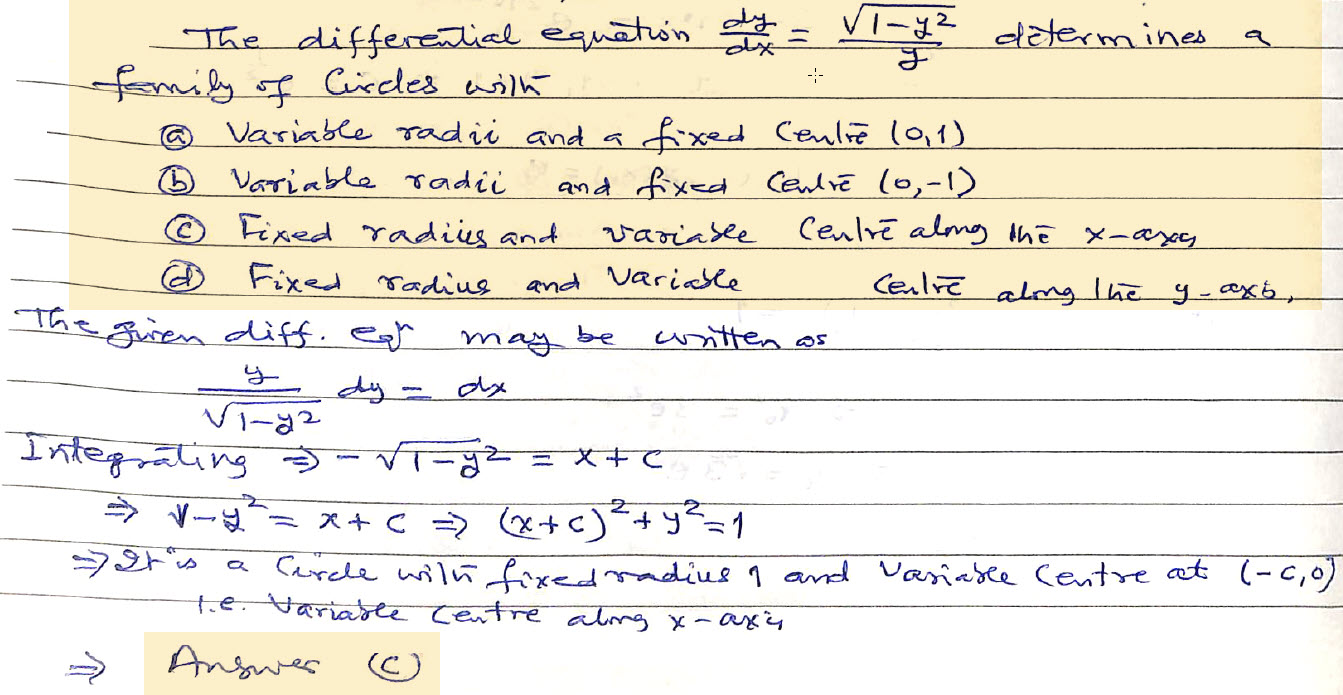 The differential equation dy/dx = √(1-y²)/y determines a
family of Circles with
(a) Variable radii and a fixed Centre (0,1)
(b) Variable radii and fixed Centre (0,-1)
(c) Fixed radius and variable Centre along the x-axis
(d) Fixed radius and Variable Centre along the y-axis,
The given diff. eqn may be written as
y/√(1-y²) dy = dx
Integrating ⇒ -√(1-y²) = x+c
⇒ 1-y² = x+c ⇒ (x+c)²+y²=1
⇒ It is a Circle with fixed radius 1 and Variable Centre at (-c,0)
i.e. Variable Centre along x-axis
⇒ Answer (C)